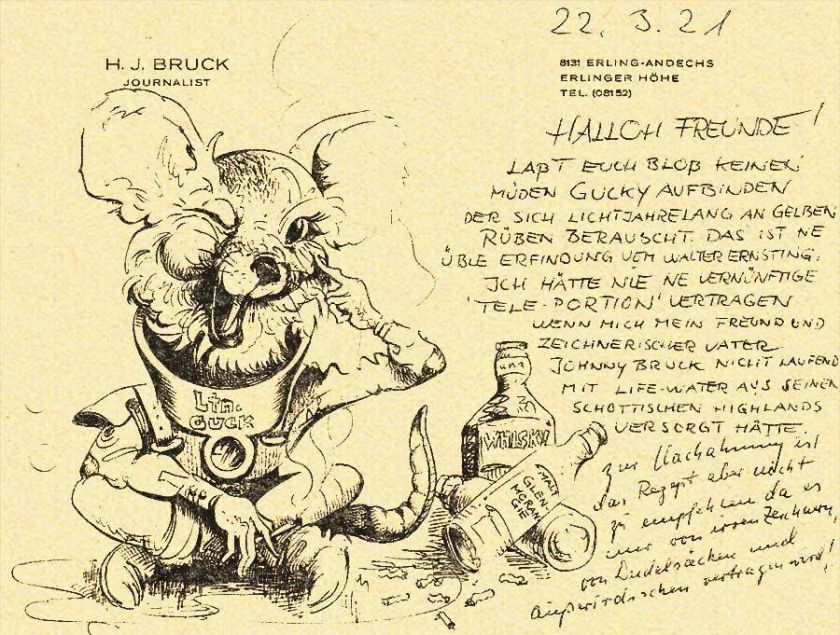 22. 3. 21
H. J. BRUCK
JOURNALIST
8131 ERLING-ANDECHS
ERLINGER HÖHE
TEL. (08152)
HALLOH FREUNDE!
LAßT EUCH BLOß KEINEN
MÜDEN GUCKY AUFBINDEN
DER SICH LICHTJAHRELANG AN GELBEN
RÜBEN BERAUSCHT. DAS IST NE
ÜBLE ERFINDUNG VOM WALTER ERNSTING.
ICH HÄTTE NIE NE VERNÜNFTIGE
'TELE-PORTION' VERTRAGEN
WENN MICH MEIN FREUND UND
ZEICHNERISCHER VATER
JOHNNY BRUCK NICHT LAUFEND
MIT LIFE-WATER AUS SEINEN
SCHOTTISCHEN HIGHLANDS
VERSORGT HÄTTE.
zur Nachahmung ist
das Rezept aber nicht
zu empfehlen da es
nur von irren Zeichnern,
von Dudelsäcken und
außerirdischen vertragen wird!
Ltn.
GUCK
WHISKY
MALT
GLEN-
MORAN
GIE